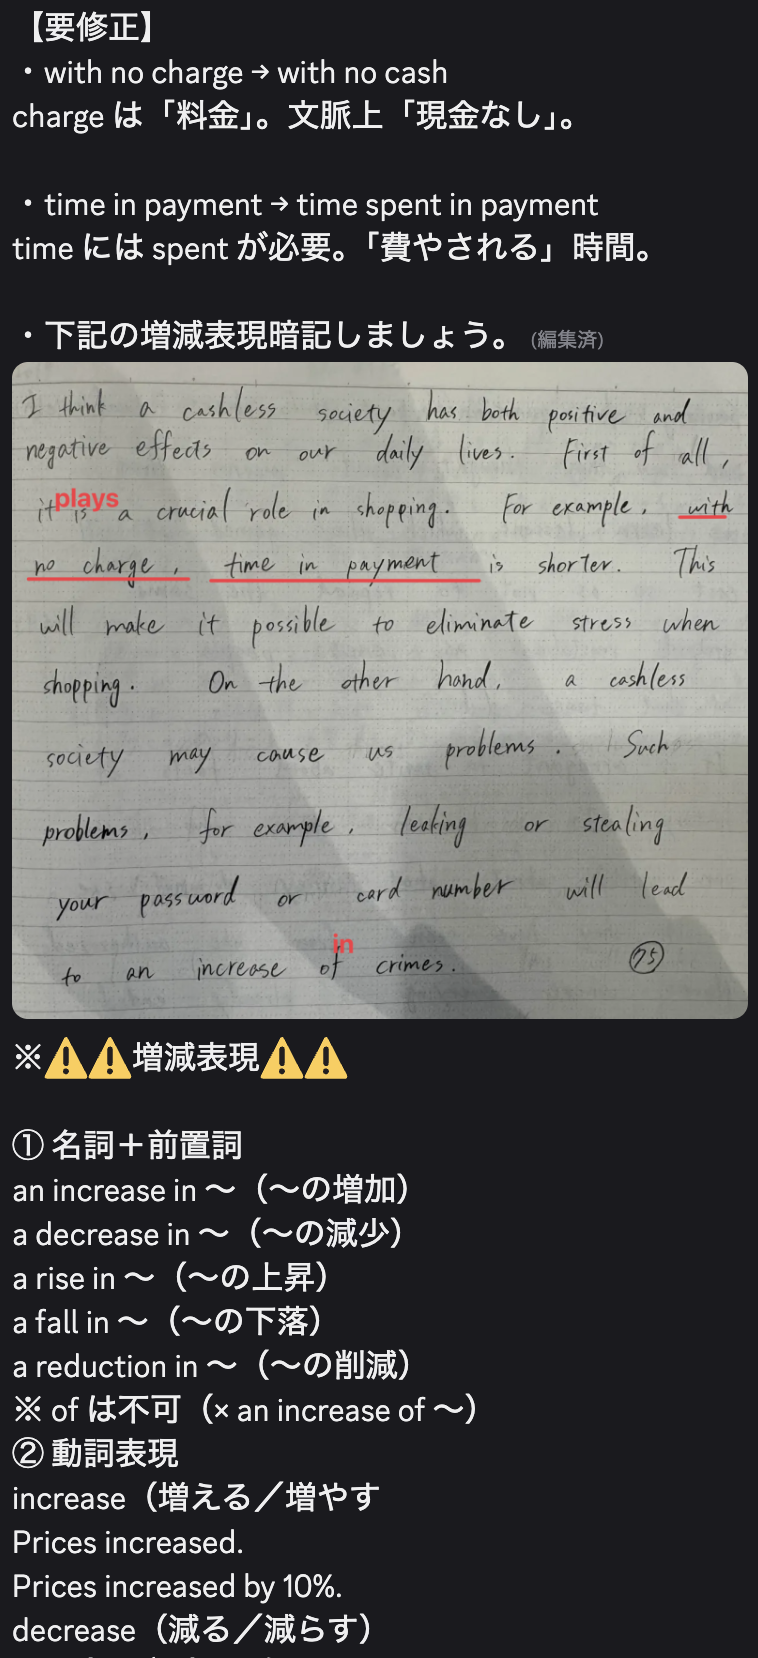 【要修正】
・with no charge → with no cash
charge は「料金」。文脈上「現金なし」。
・time in payment → time spent in payment
time には spent が必要。「費やされる」時間。
・下記の増減表現暗記しましょう。(編集済)
I think a cashless society has both positive and
negative effects on our daily lives. First of all,
plays
it is a crucial role in shopping. For example, with
no charge, time in payment is shorter. This
will make it possible to eliminate stress when
shopping. On the other hand, a cashless
society may cause us problems. Such
problems, for example, leaking or stealing
your password or card number will lead
in
to an increase of crimes. 75
※⚠️⚠️増減表現⚠️⚠️
① 名詞＋前置詞
an increase in 〜（〜の増加）
a decrease in 〜（〜の減少）
a rise in 〜（〜の上昇）
a fall in 〜（〜の下落）
a reduction in 〜（〜の削減）
※ of は不可（× an increase of 〜）
② 動詞表現
increase（増える／増やす
Prices increased.
Prices increased by 10%.
decrease（減る／減らす）